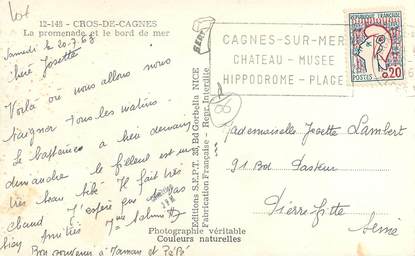 12-148 - CROS-DE-CAGNES
La promenade et le bord de mer
Samedi le 20.7.68
Chère Josette
Voilà où nous allons nous
baigner tous les matins.
Le baptême a lieu demain
dimanche le filleul est un
très beau bébé Il fait très
chaud J'espère que pas
Bon souvenir à Maman et Pépé
Photographie véritable
Couleurs naturelles
Editions S.E.P.T. 38, Bd Gorbella NICE
Fabrication Française - Repr. Interdite
CAGNES-SUR-MER
CHATEAU - MUSEE
HIPPODROME - PLAGE
REPUBLIQUE FRANCAISE
POSTES 0,20
06
Mademoiselle Josette Lambert
91 Bd Pasteur
Pierrefitte
Seine